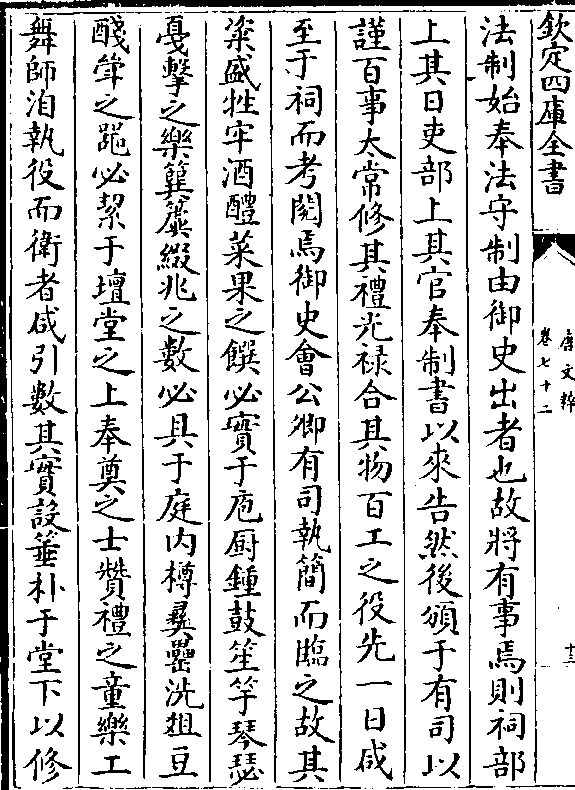 欽定四庫全書
唐文粹
卷七十二
十三
法制始奉法守制由御史出者也故將有事焉則祠部
上其日吏部上其官奉制書以來告然後頒于有司以
謹百事太常修其禮光禄合其物百工之役先一日咸
至于祠而考閱焉御史會公卿有司執簡而臨之故其
粢盛牲牢酒醴菜果之饌必實于庖厨鍾鼓笙竽琴瑟
戞擊之樂簨簴綴兆之數必具于庭内樽彛罍洗俎豆
醆斝之器必絜于壇堂之上奉奠之士贊禮之童樂工
舞師洎執役而衛者咸引數其實設箠朴于堂下以修